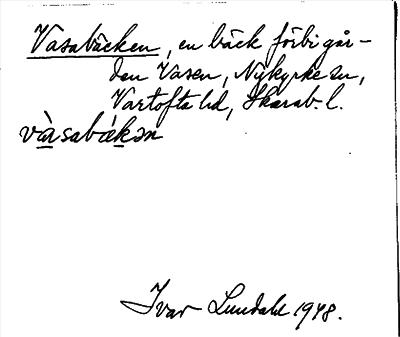 Vasabäcken, en bäck förbi går-
den Vasen, Nykyrke sn,
Vartofta hd, Skarab. l.
vàsabǽkən
Ivar Lundahl 1948.